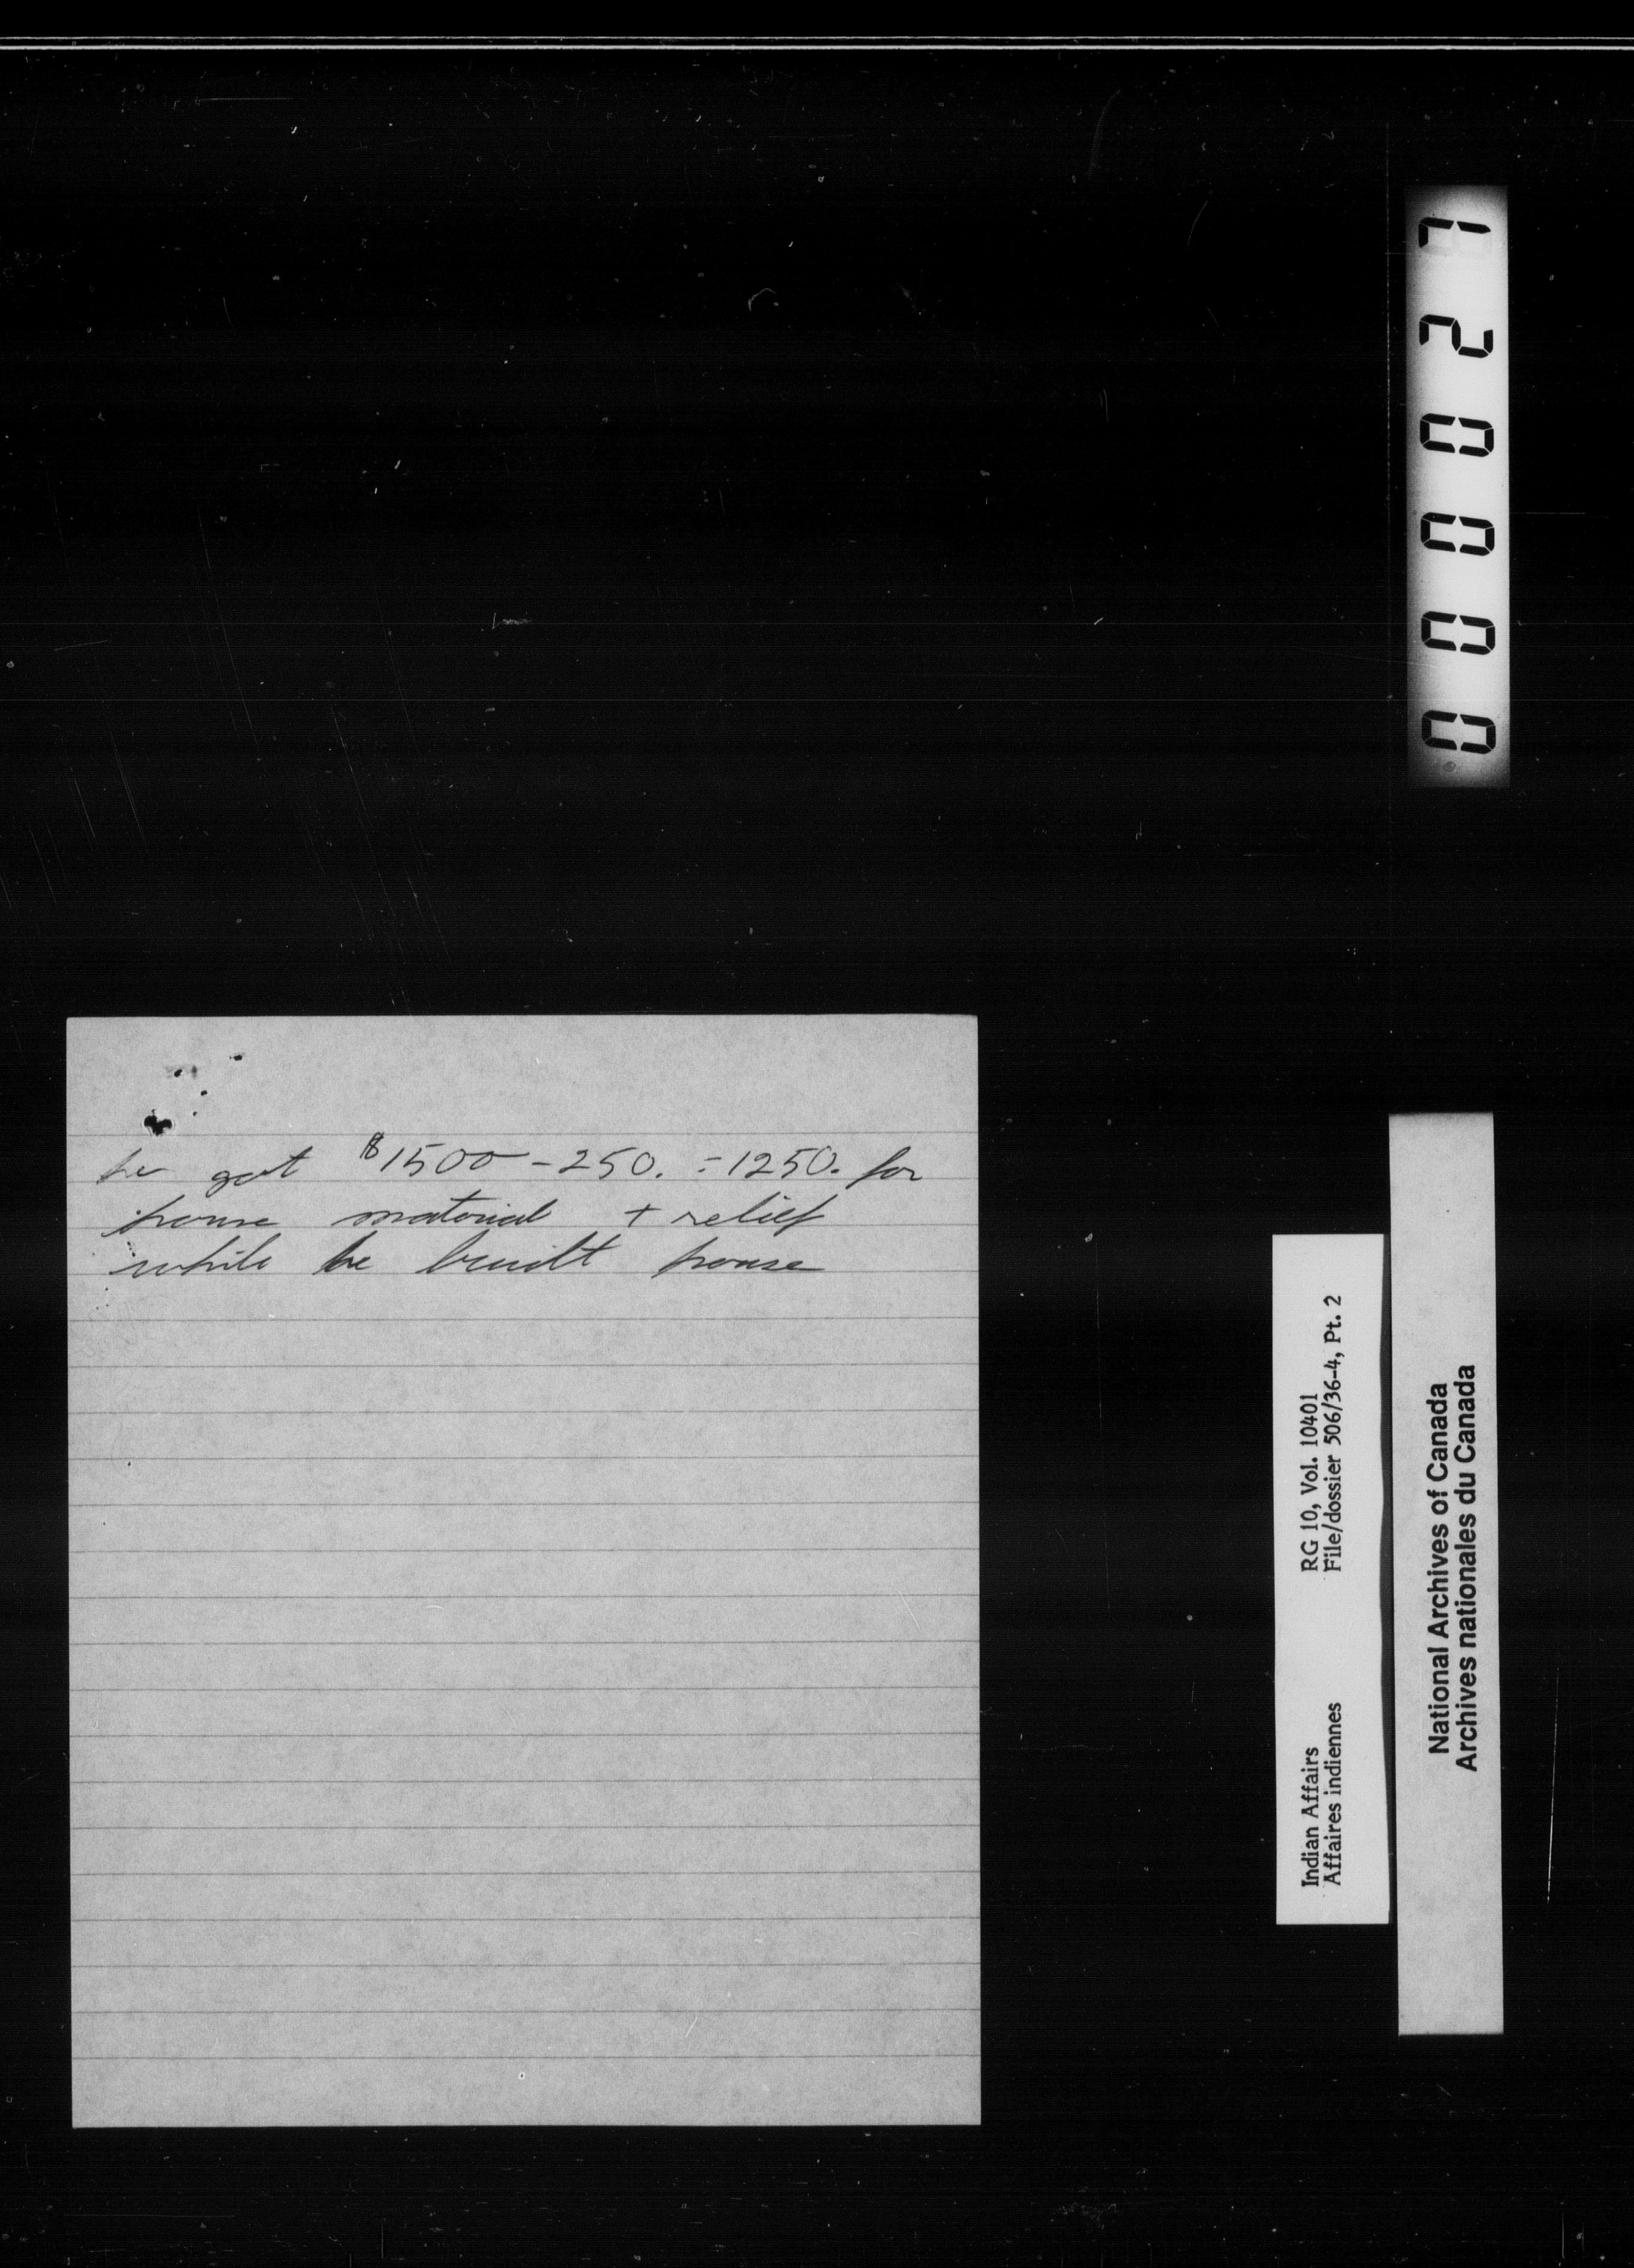 he got $1500 - 250. = 1250. for
house material + relief
while he built house
000027
Indian Affairs RG 10, Vol. 10401
Affaires indiennes File/dossier 506/36-4, Pt. 2
National Archives of Canada
Archives nationales du Canada